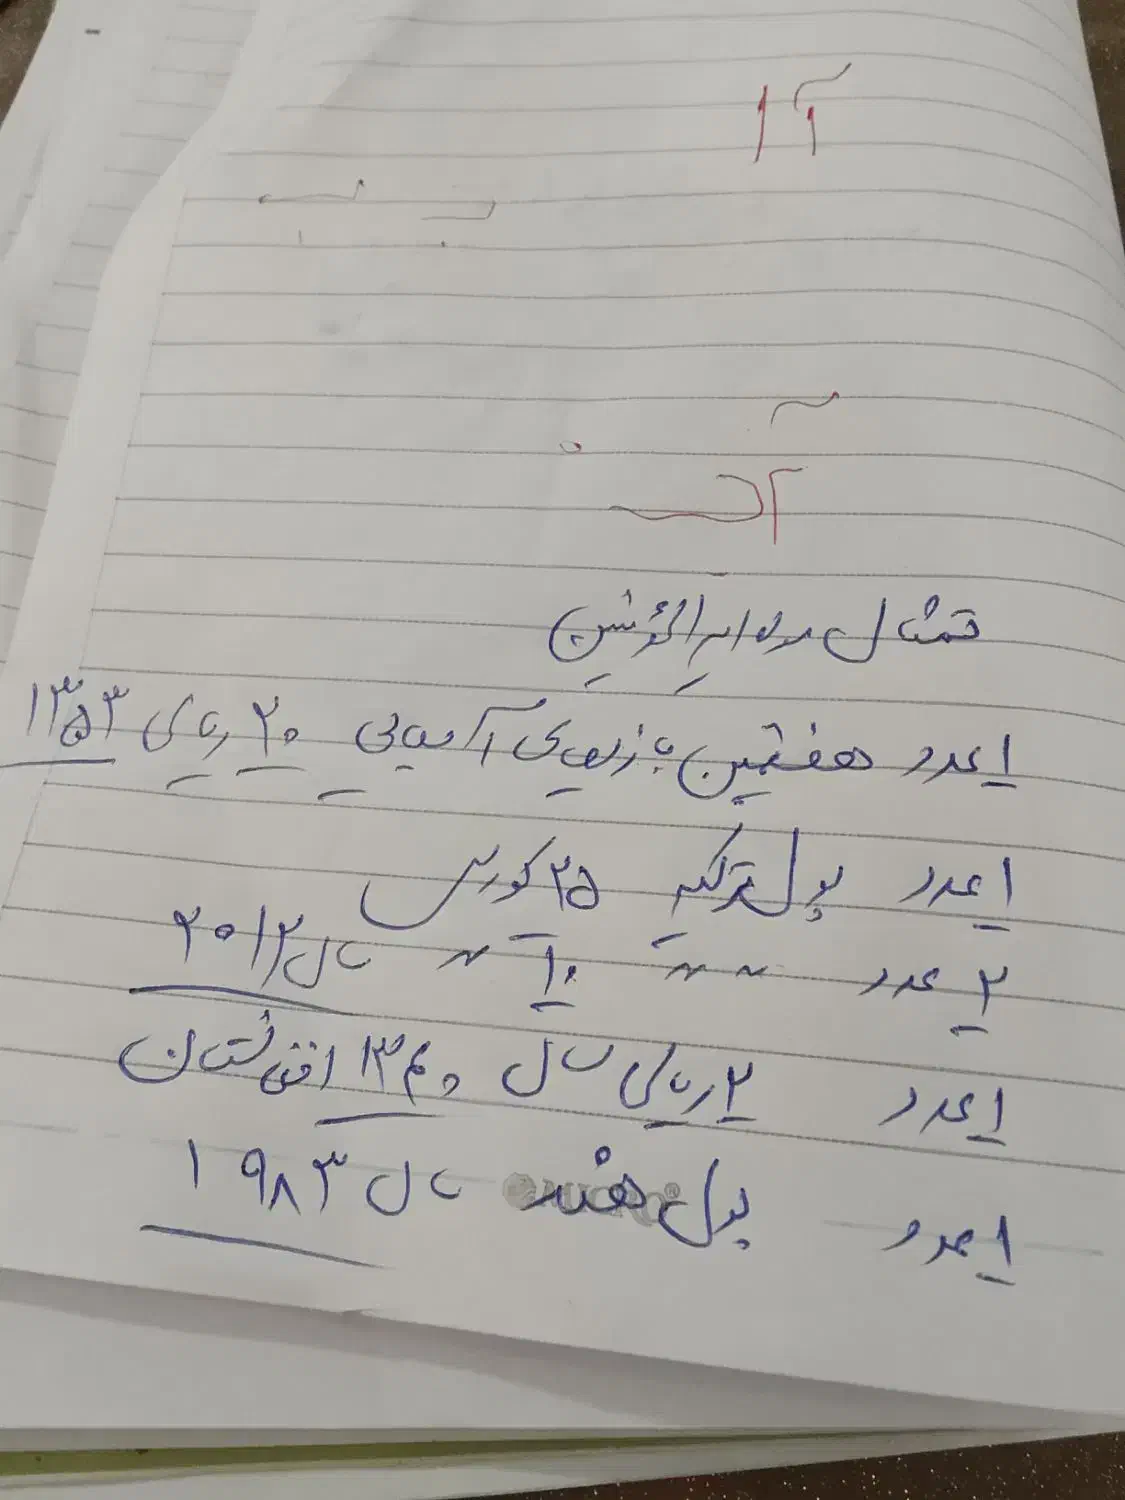 آ ا
آب
تمثال مولا امیرالمؤمنین
۱ عدد هفتمین بازیهای آسیایی ۲۰ ریالی ۱۳۵۳
۱ عدد پول ترکیه ۲۵ کورس
۲ عدد ~ ~ ~ ۱۰ ~ سال ۲۰۱۲
۱ عدد ۲ ریالی سال افغانستان
۱ عدد پول هند سال ۱۹۸۳